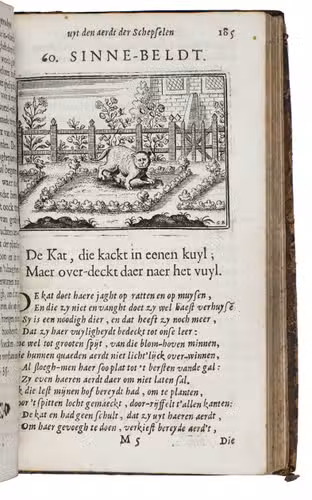 uyt den aerdt der Schepselen 185
60. SINNE-BELDT.
De Kat, die kackt in eenen kuyl;
Maer over-deckt daer naer het vuyl.
DE kat doet haere jaght op ratten en op muysen,
En die zy niet en vanght doet zy wel haest verhuysen
Sy is een noodigh dier, en dat heeft zy noch meer,
Dat zy haer vuyligheydt bedeckt tot onse leer:
wel tot grooten spijt, van die blom-hoven minnen,
die hunnen quaeden aerdt niet licht'lijck over-winnen,
Al sloegh-men haer soo plat tot't bersten vande gal:
Zy even haeren aerdt daer om niet laten sal.
die lest mijnen hof bereydt had, om te planten,
't spitten locht gemaeckt, door-rijffelt t'allen kanten:
De kat en had geen schult, dat zy uyt haeren aerdt,
Om haer gevoegh te doen, verkiest bereyde aerd',
M 5 Die